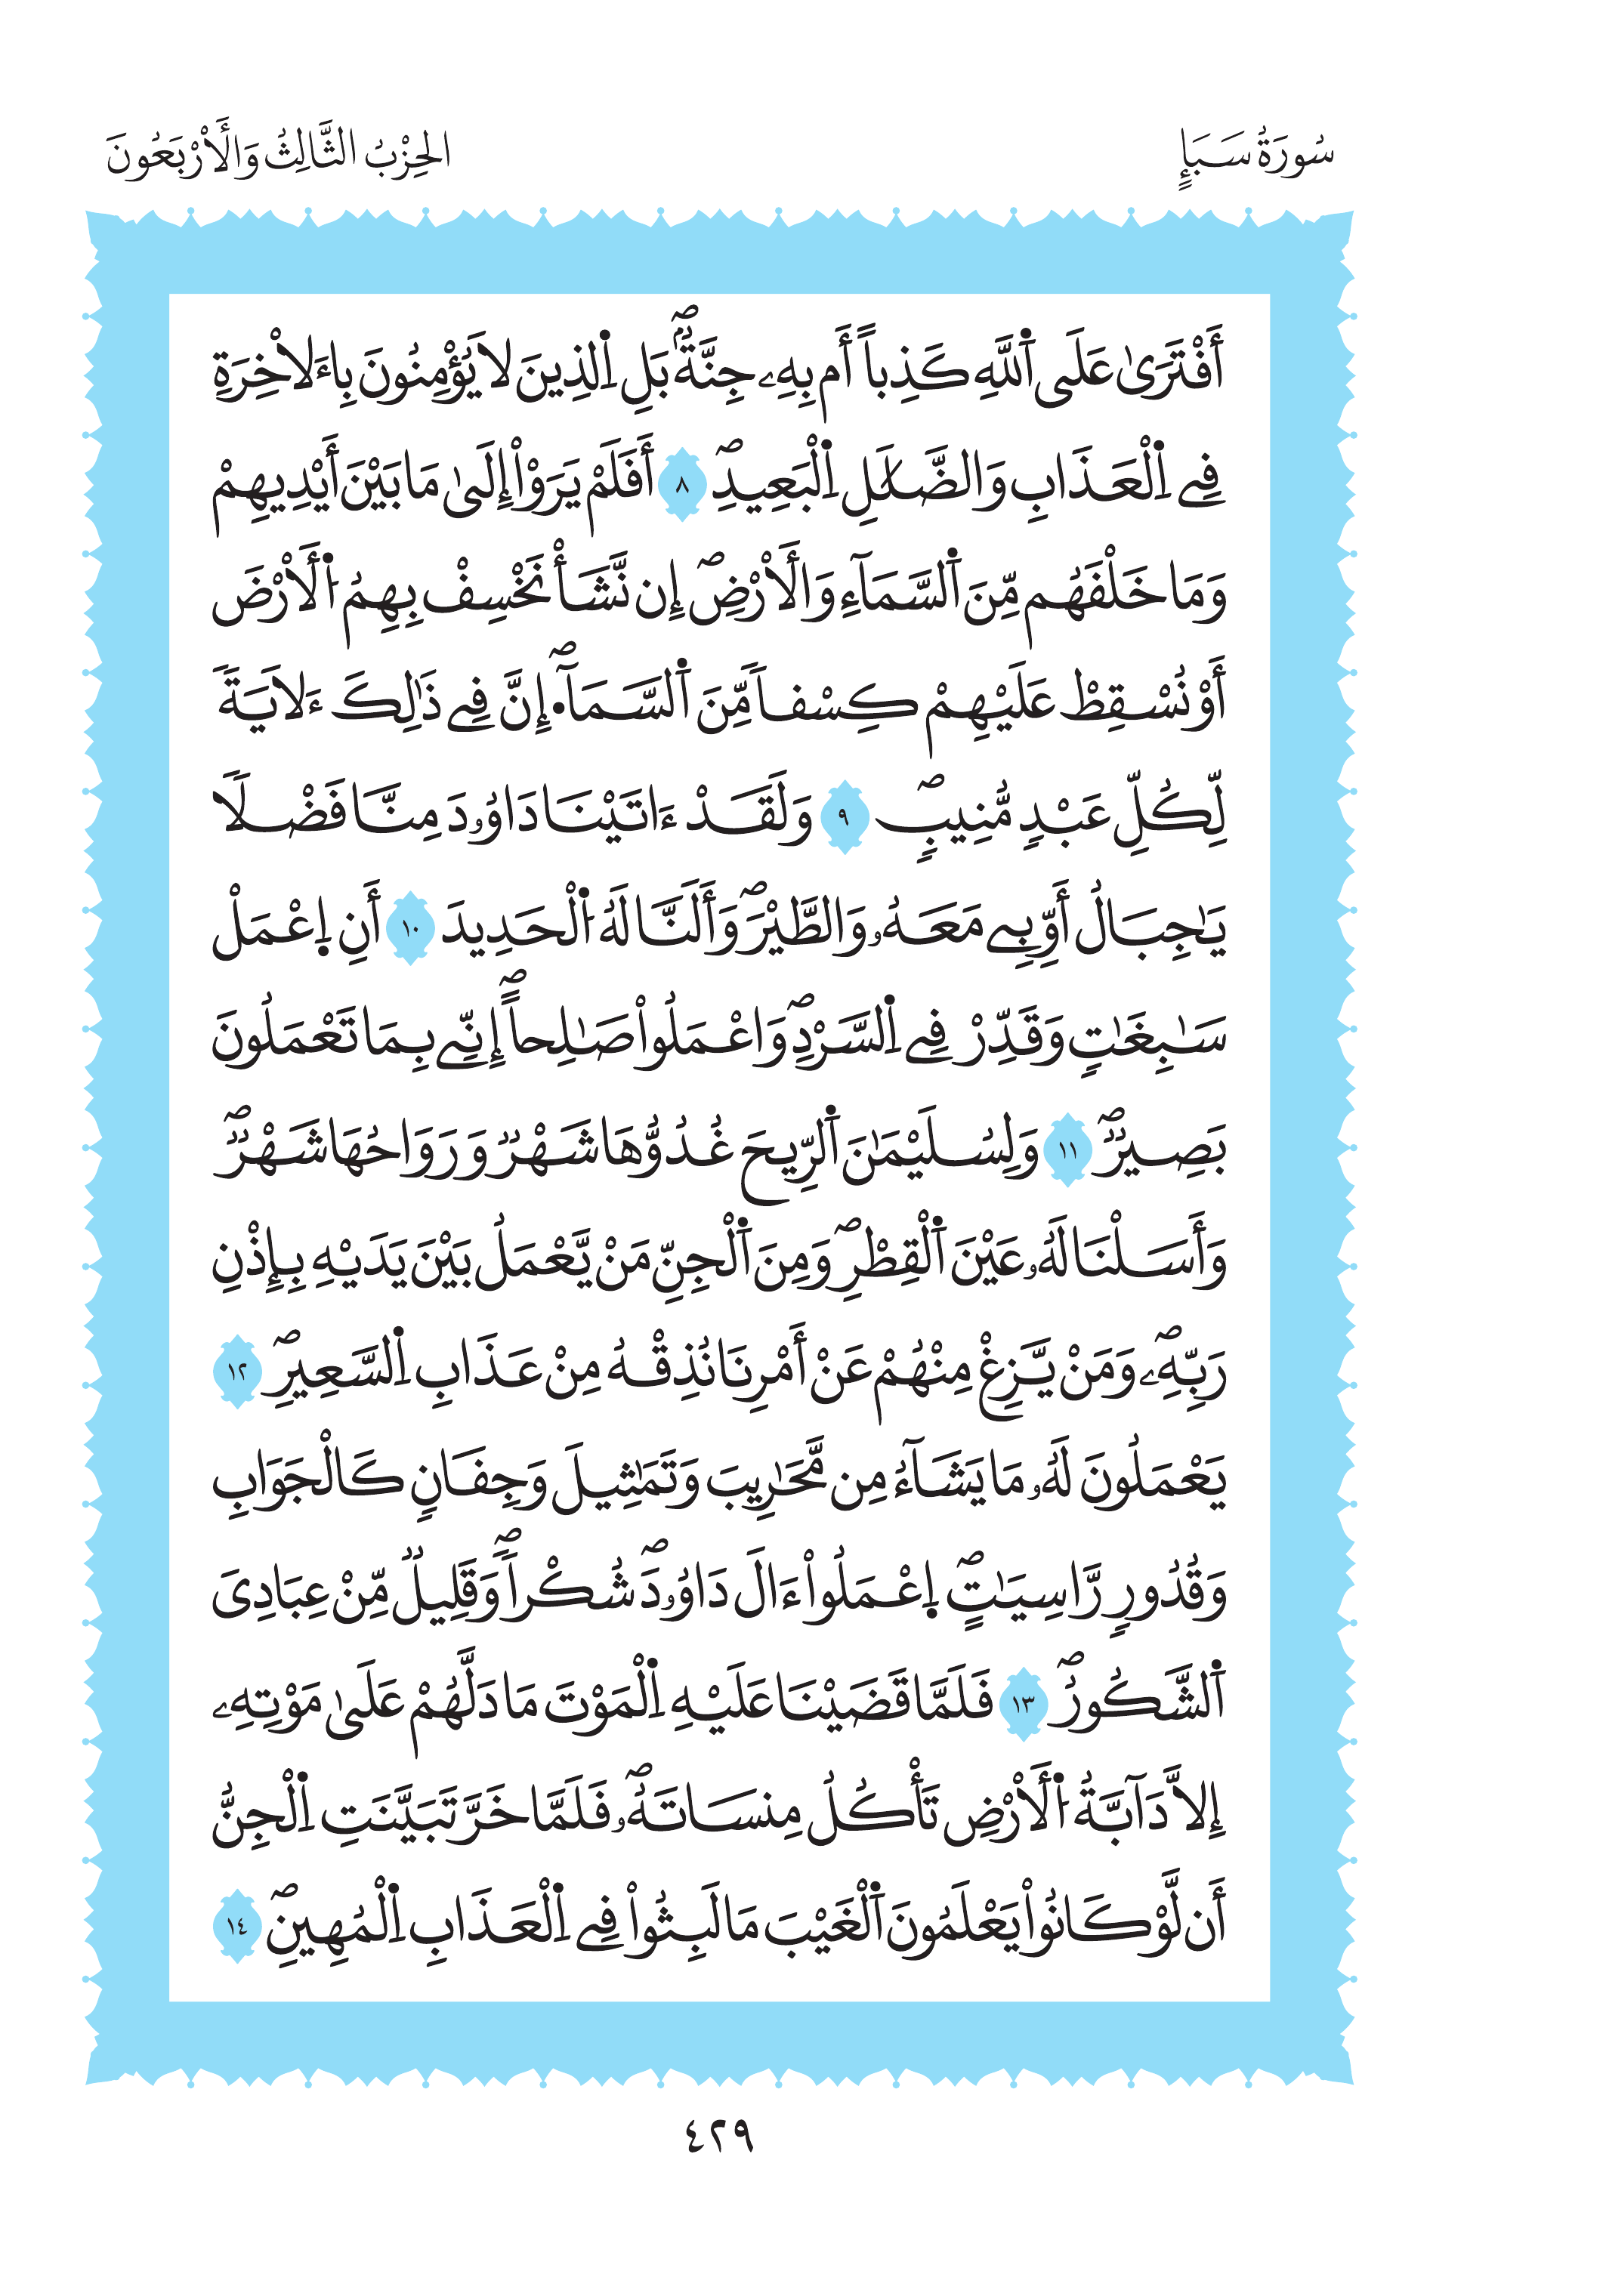 سُورَةُ سَبَإٍ
الحِزْبُ الثَّالِثُ وَالْأَرْبَعُونَ
أَفْتَرَىٰ عَلَى اَ۬للَّهِ كَذِباً أَم بِهِۦ جِنَّةُۢۖ بَلِ اِ۬لذِينَ لَا يُؤْمِنُونَ بِالَاخِرَةِ
فِے اِ۬لْعَذَابِ وَالضَّلَٰلِ اِ۬لْبَعِيدِۖ ٨ أَفَلَمْ يَرَوْاْ اِلَىٰ مَا بَيْنَ أَيْدِيهِمْ
وَمَا خَلْفَهُم مِّنَ اَ۬لسَّمَآءِ وَالَارْضِۖ إِن نَّشَأْ نَخْسِفْ بِهِمُ اُ۬لَارْضَ
أَوْ نُسْقِطْ عَلَيْهِمْ كِسْفاٗ مِّنَ اَ۬لسَّمَآءِۖ انَّ فِے ذَٰلِكَ ءَلَايَةٗ
لِّكُلِّ عَبْدٖ مُّنِيبٖۖ ٩ وَلَقَدْ ءَاتَيْنَا دَاوُۥدَ مِنَّا فَضْلاٗ
يَٰجِبَالُ أَوِّبِے مَعَهُۥ وَالطَّيْرَۖ وَأَلَنَّا لَهُ اُ۬لْحَدِيدَ ١٠ أَنِ اِ۪عْمَلْ
سَٰبِغَٰتٖ وَقَدِّرْ فِے اِ۬لسَّرْدِۖ وَاعْمَلُواْ صَٰلِحاًۖ إِنِّے بِمَا تَعْمَلُونَ
بَصِيرٞۖ ١١ وَلِسُلَيْمَٰنَ اَ۬لرِّيحَ غُدُوُّهَا شَهْرٞ وَرَوَاحُهَا شَهْرٞۖ
وَأَسَلْنَا لَهُۥ عَيْنَ اَ۬لْقِطْرِۖ وَمِنَ اَ۬لْجِنِّ مَنْ يَّعْمَلُ بَيْنَ يَدَيْهِ بِإِذْنِ
رَبِّهِۦۖ وَمَنْ يَّزِغْ مِنْهُمْ عَنْ أَمْرِنَا نُذِقْهُ مِنْ عَذَابِ اِ۬لسَّعِيرِۖ ١٢
يَعْمَلُونَ لَهُۥ مَا يَشَآءُ مِن مَّحَٰرِيبَ وَتَمَٰثِيلَ وَجِفَانٖ كَالْجَوَابِ
وَقُدُورٖ رَّاسِيَٰتٍۖ اِ۪عْمَلُواْ ءَالَ دَاوُۥدَۖ شُكْراٗۖ وَقَلِيلٞ مِّنْ عِبَادِيَ
اَ۬لشَّكُورُۖ ١٣ فَلَمَّا قَضَيْنَا عَلَيْهِ اِ۬لْمَوْتَ مَا دَلَّهُمْ عَلَىٰ مَوْتِهِۦ
إِلاَّ دَآبَّةُ اُ۬لَارْضِ تَأْكُلُ مِنسَاتَهُۥۖ فَلَمَّا خَرَّ تَبَيَّنَتِ اِ۬لْجِنُّ
أَن لَّوْ كَانُواْ يَعْلَمُونَ اَ۬لْغَيْبَ مَا لَبِثُواْ فِے اِ۬لْعَذَابِ اِ۬لْمُهِينِۖ ١٤
٤٢٩